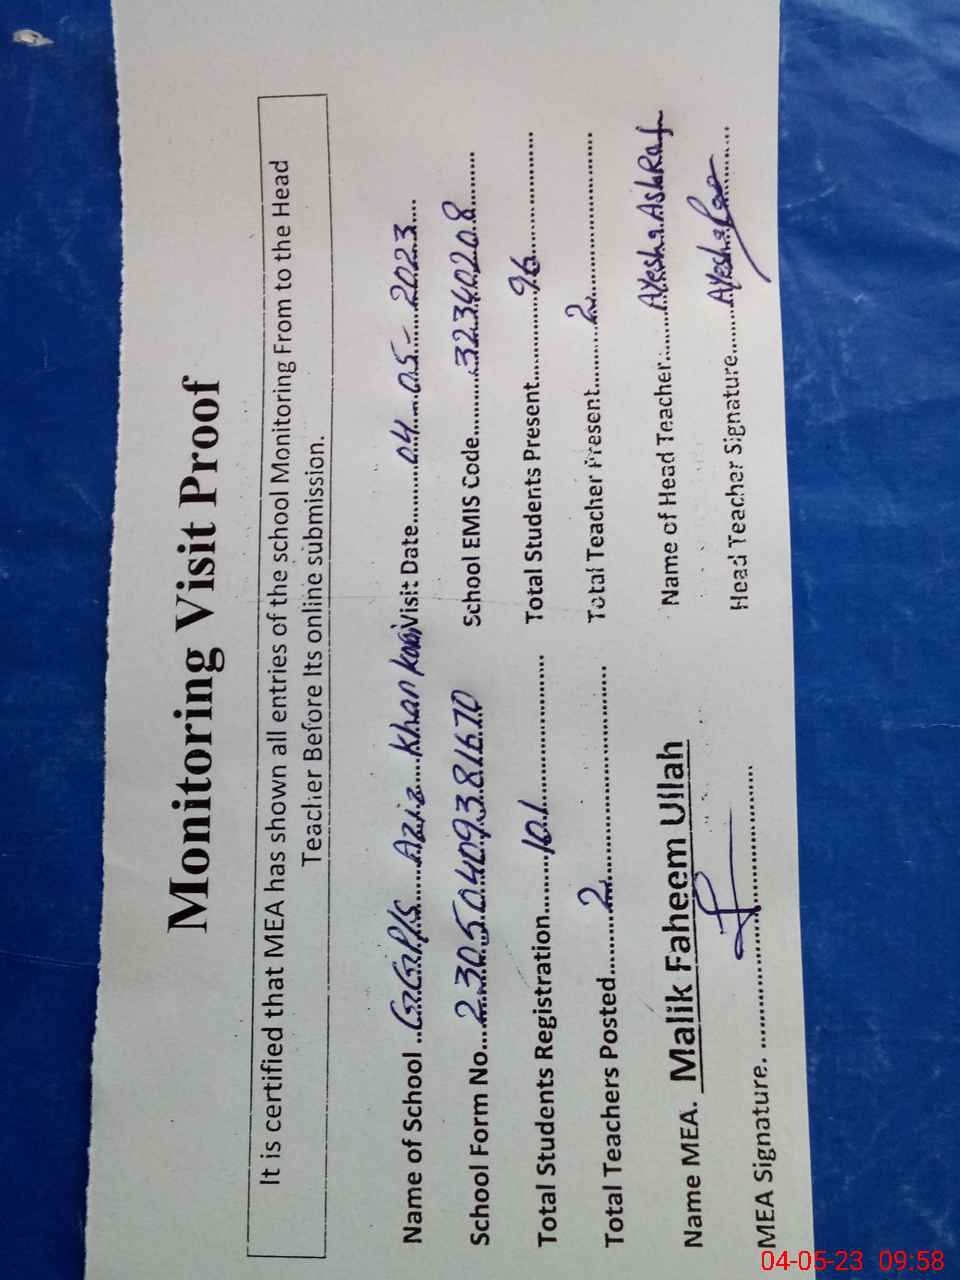 Monitoring Visit Proof
It is certified that MEA has shown all entries of the school Monitoring From to the Head
Teacher Before Its online submission.
Name of School ..GGP/S.....Aziz....Khan Visit Date.........04....05.-.2023....
School Form No....23050409381670 School EMIS Code.........32340208........
Total Students Registration.........101....................... Total Students Present............96.....................
Total Teachers Posted.........2............................... Total Teacher Present.........2...........................
Name MEA. Malik Faheem Ullah Name of Head Teacher:......Ayesha Ashraf
MEA Signature. .................................... Head Teacher Signature.......Ayesha............
04-05-23 09:58